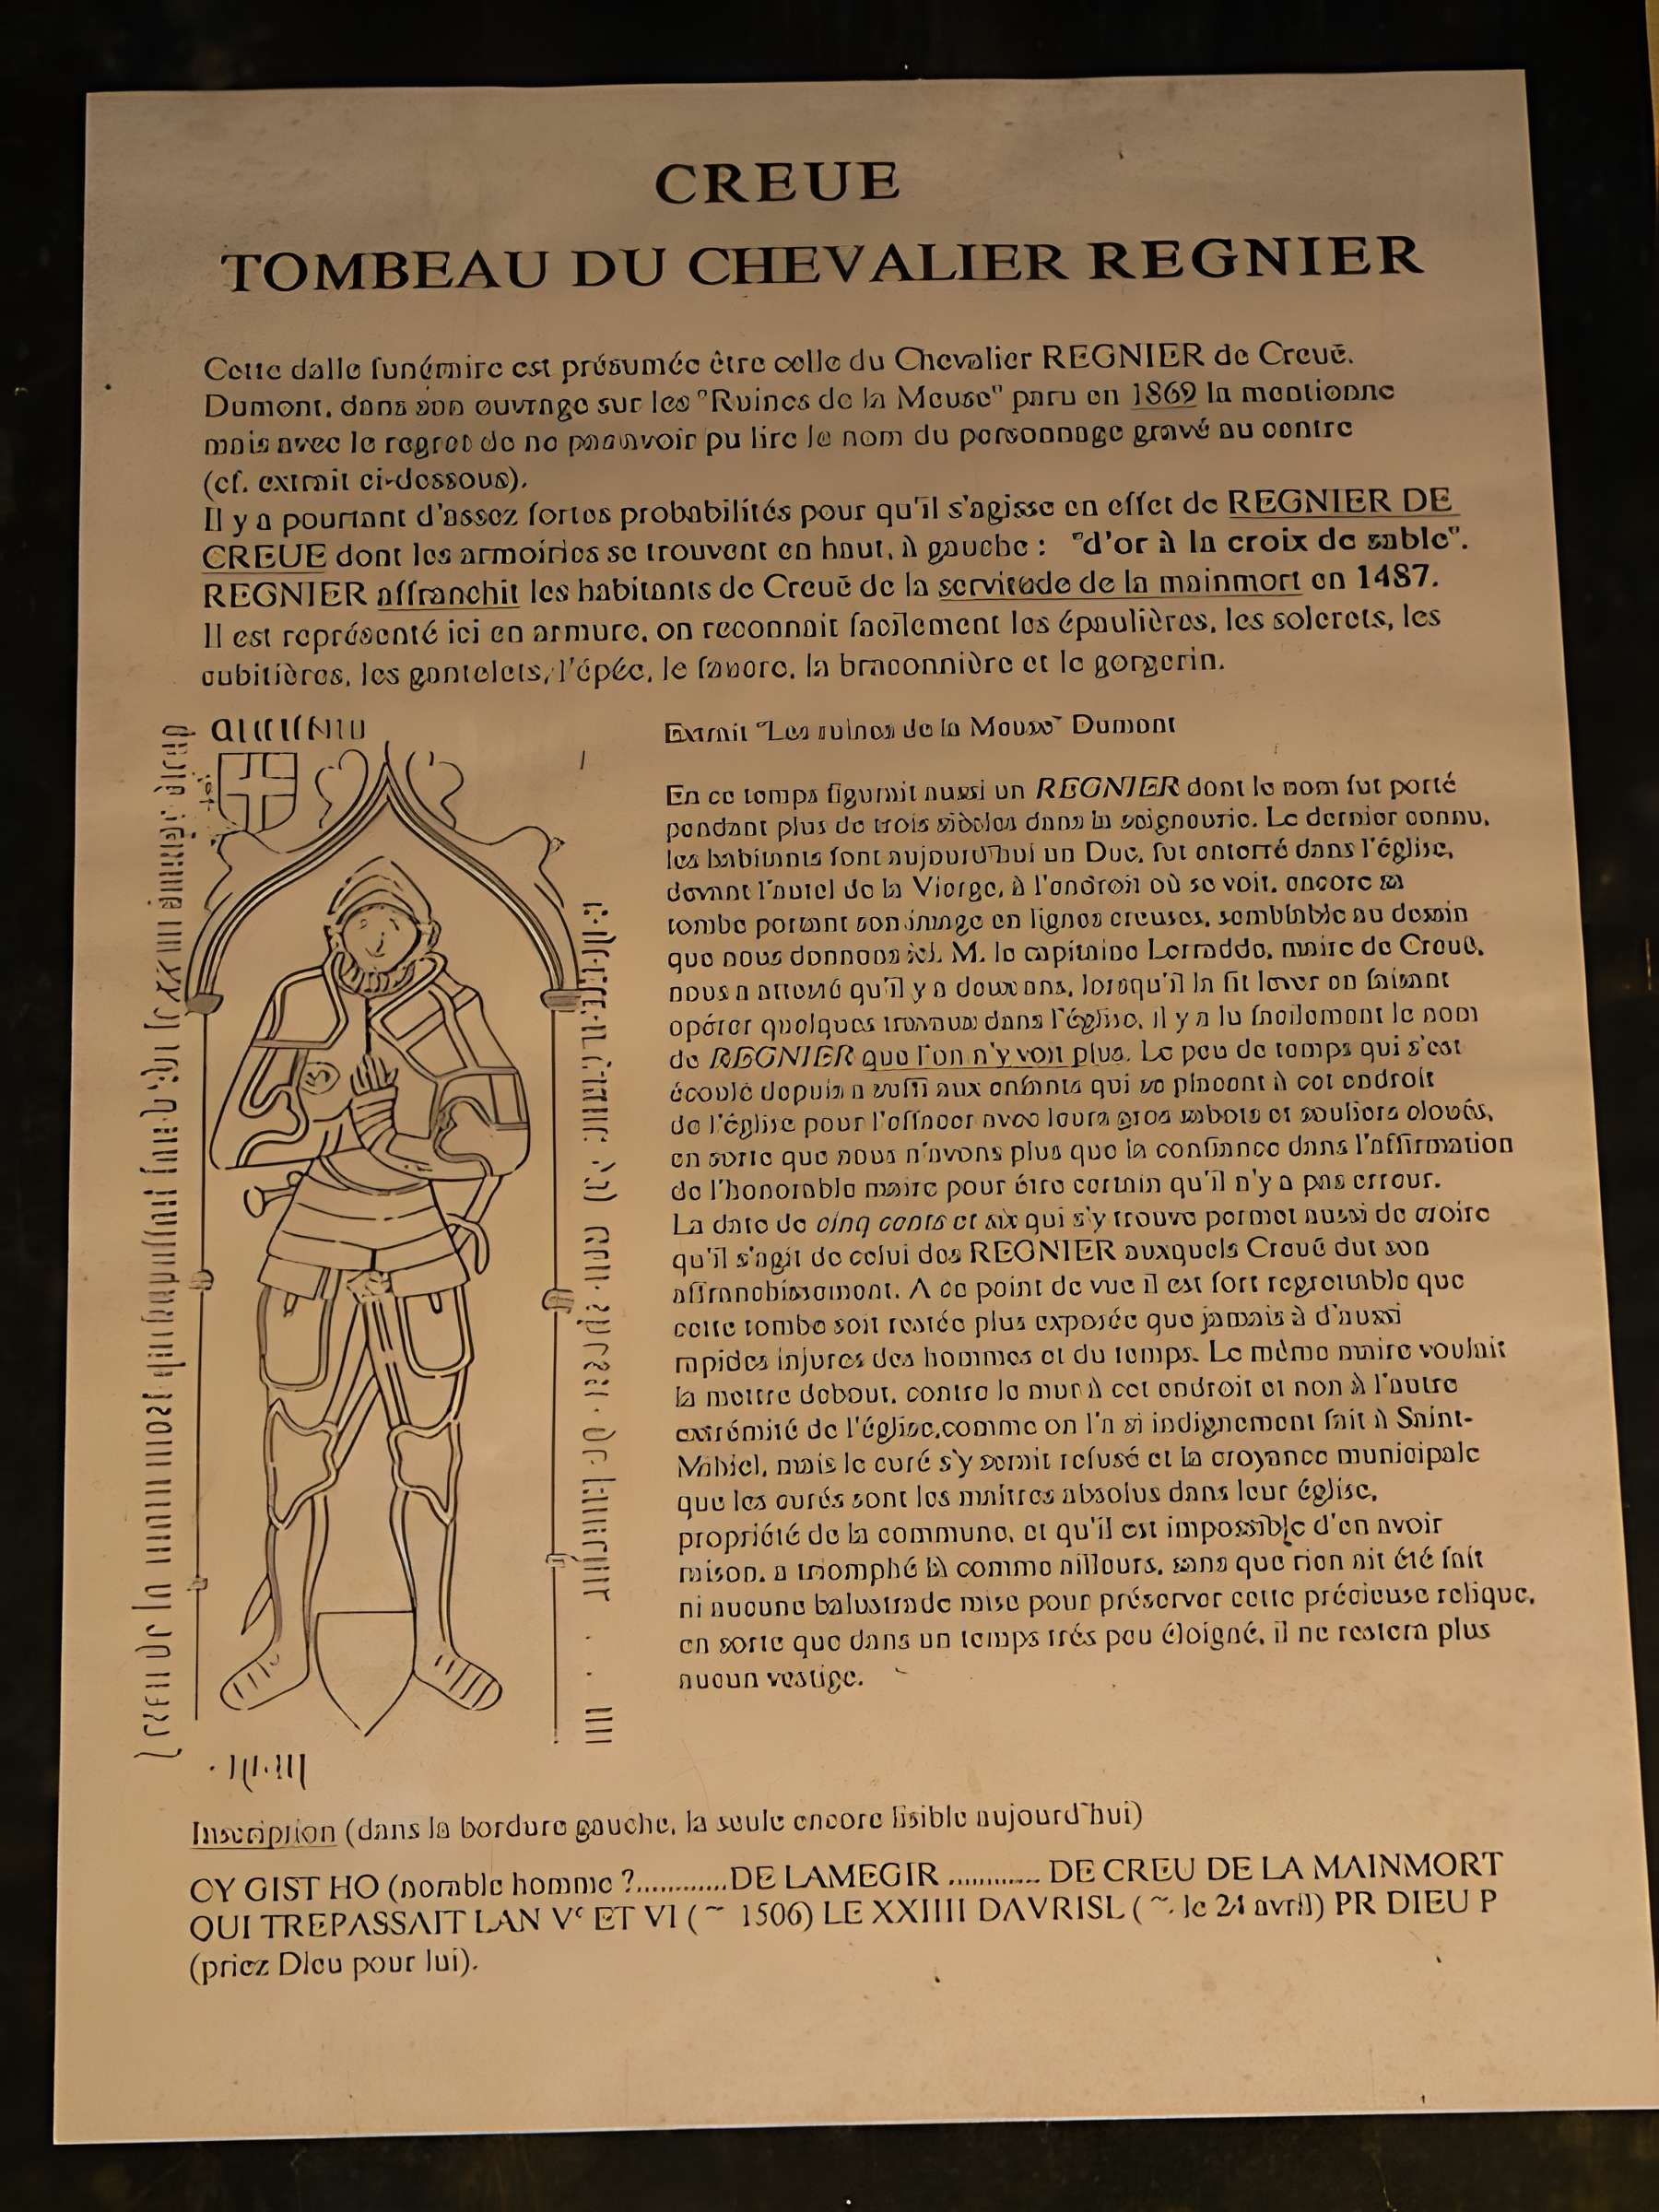 CREUE
TOMBEAU DU CHEVALIER REGNIER
Cette dalle funéraire est présumée être celle du Chevalier REGNIER de Creuë.
Dumont, dans son ouvrage sur les "Ruines de la Meuse" paru en 1869 la mentionne
mais avec le regret de ne pu lire le nom du personnage gravé au centre
(cf. extrait ci-dessous).
Il y a pourtant d'assez fortes probabilités pour qu'il s'agisse en effet de REGNIER DE
CREUE dont les armoiries se trouvent en haut, à gauche : "d'or à la croix de sable".
REGNIER affranchit les habitants de Creuë de la servitude de la mainmort en 1487.
Il est représenté ici en armure, on reconnait facilement les épaulières, les solerets, les
cubitières, les gantelets, l'épée, le, la braconnière et le gorgerin.
Extrait "Les ruines de la Meuse" Dumont
En ce temps figurait aussi un REGNIER dont le nom fut porté
pendant plus de trois siècles dans la seigneurie. Le dernier connu,
les habitants font aujourd'hui un Duc, fut enterré dans l'église,
devant l'autel de la Vierge, à l'endroit où se voit, encore sa
tombe portant son image en lignes creuses, semblable au dessin
que nous donnons ici. M. le capitaine, maire de Creuë,
nous a attesté qu'il y a deux ans, lorsqu'il la fit lever en faisant
opérer quelques travaux dans l'église, il y a lu facilement le nom
de REGNIER que l'on n'y voit plus. Le peu de temps qui s'est
écoulé depuis a suffi aux enfants qui se placent à cet endroit
de l'église pour l'effacer avec leurs gros sabots et souliers cloués,
en sorte que nous n'avons plus que la confiance dans l'affirmation
de l'honorable maire pour être certain qu'il n'y a pas erreur.
La date de cinq cents et six qui s'y trouve permet aussi de croire
qu'il s'agit de celui des REGNIER auxquels Creuë dut son
affranchissement. A ce point de vue il est fort regrettable que
cette tombe soit restée plus exposée que jamais à d'aussi
rapides injures des hommes et du temps. Le même maire voulait
la mettre debout, contre le mur à cet endroit et non à l'autre
extrémité de l'église,comme on l'a si indignement fait à Saint-
Mihiel, mais le curé s'y serait refusé et la croyance municipale
que les curés sont les maîtres absolus dans leur église,
propriété de la commune, et qu'il est impossible d'en avoir
raison, a triomphé là comme ailleurs, sans que rien ait été fait
ni aucune balustrade mise pour préserver cette précieuse relique,
en sorte que dans un temps trés peu éloigné, il ne restera plus
aucun vestige.
Inscription (dans la bordure gauche, la seule encore lisible aujourd'hui)
CY GIST HO (norable homme ?............DE LAMEGIR ............ DE CREU DE LA MAINMORT
QUI TREPASSAIT LAN Vᶜ ET VI (~ 1506) LE XXIIII DAVRISL (~ le 24 avril) PR DIEU P
(priez Dieu pour lui).